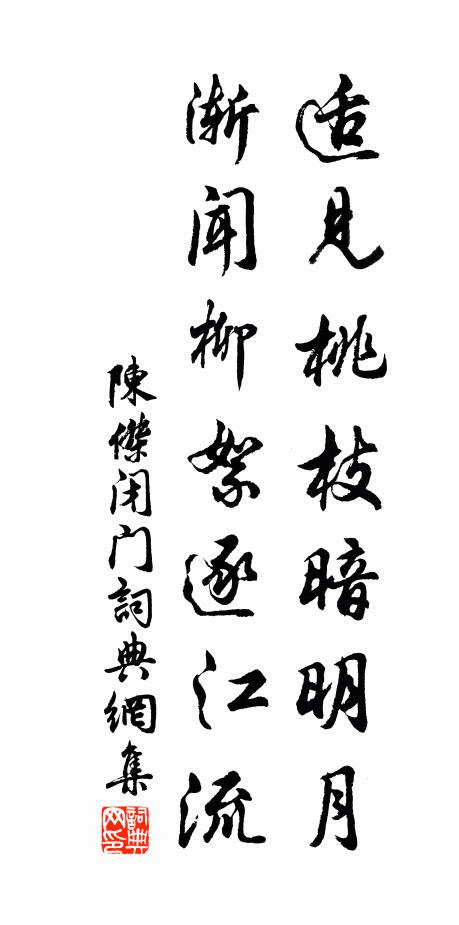 适見桃枝暗明月
漸聞柳絮逐江流
陳傑闭门詞典網集
詞典网印